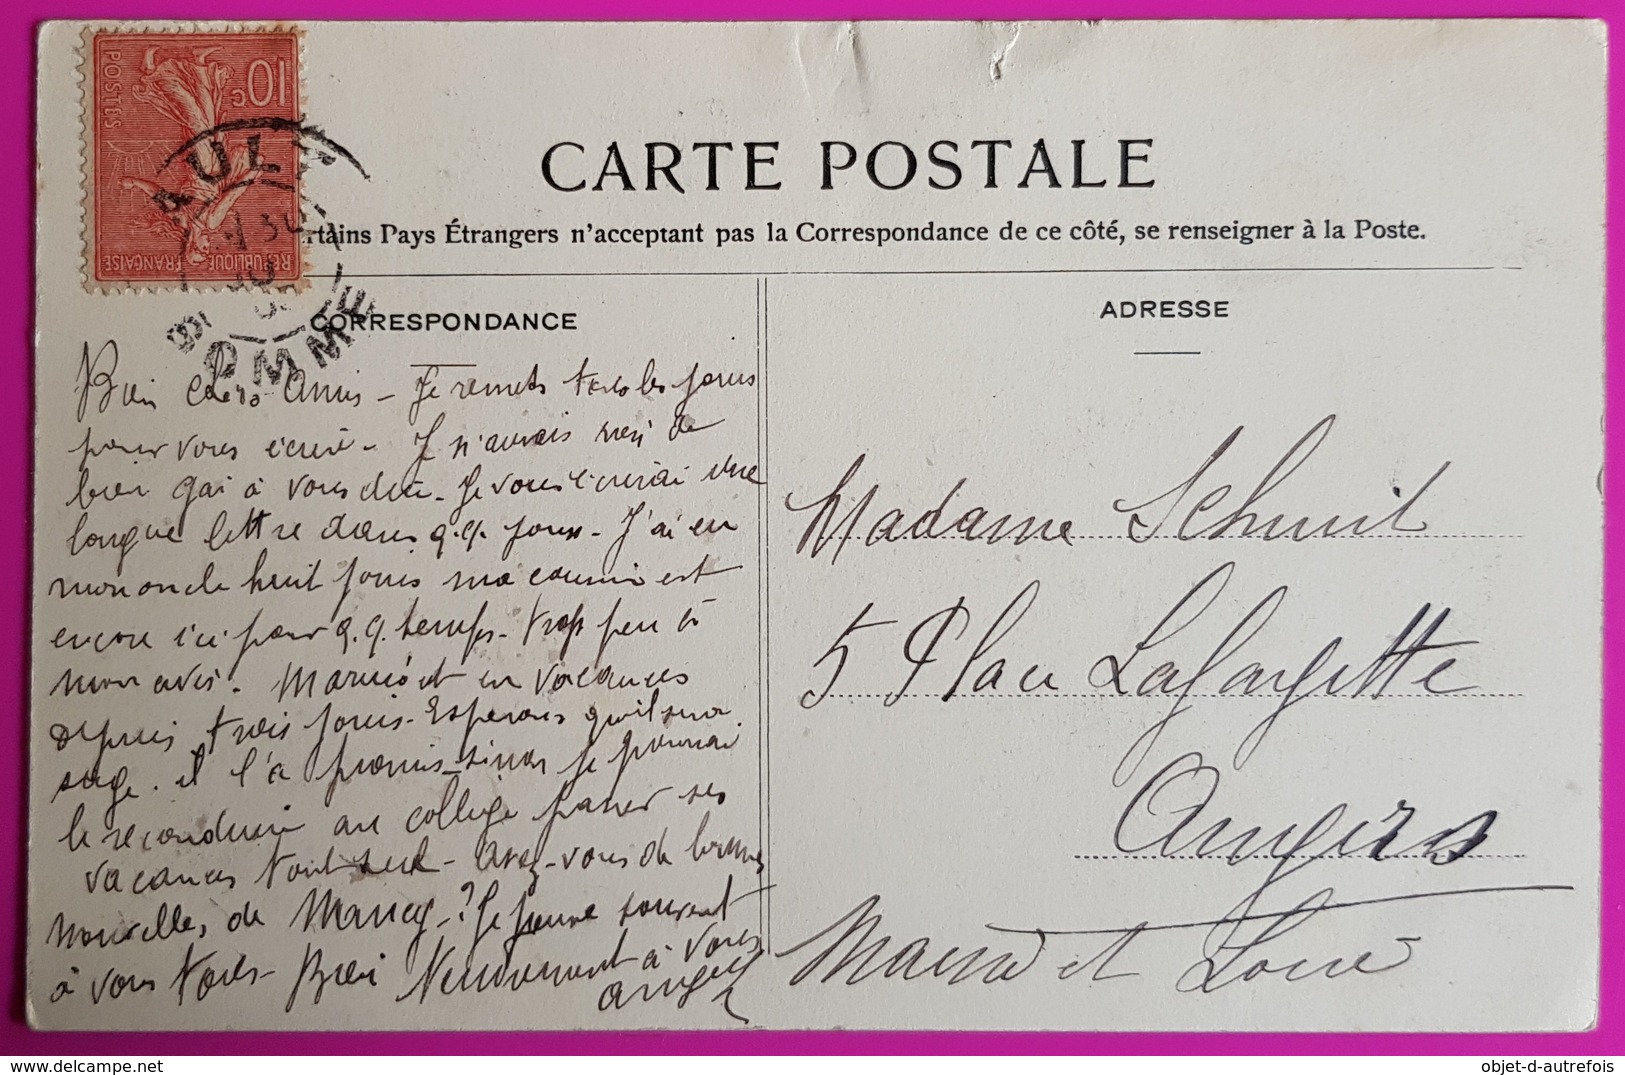 10c
POSTES
REPUBLIQUE FRANÇAISE
AULT
SOMME
CARTE POSTALE
rtains Pays Étrangers n'acceptant pas la Correspondance de ce côté, se renseigner à la Poste.
CORRESPONDANCE
Bien chers Amis - Je remets tous les jours
pour vous écrire - Je n'aurais rien de
bien gai à vous dire - Je vous écrirai une
longue lettre dans q.q. jours - J'ai eu
mon oncle huit jours ma cousine est
encore ici pour q.q. temps - trop peu à
mon avis. Maurice est en vacances
depuis trois jours - Espérons qu'il sera
sage. il l'a promis - sinon je pourrai
le reconduire au collège passer ses
vacances tout seul - Avez-vous de bonnes
nouvelles de Nancy - ? Je pense souvent
à vous tous - Bien à vous
ADRESSE
Madame Schmit
5 Place Lafayette
Angers
Maine et Loire
objet-d-autrefois